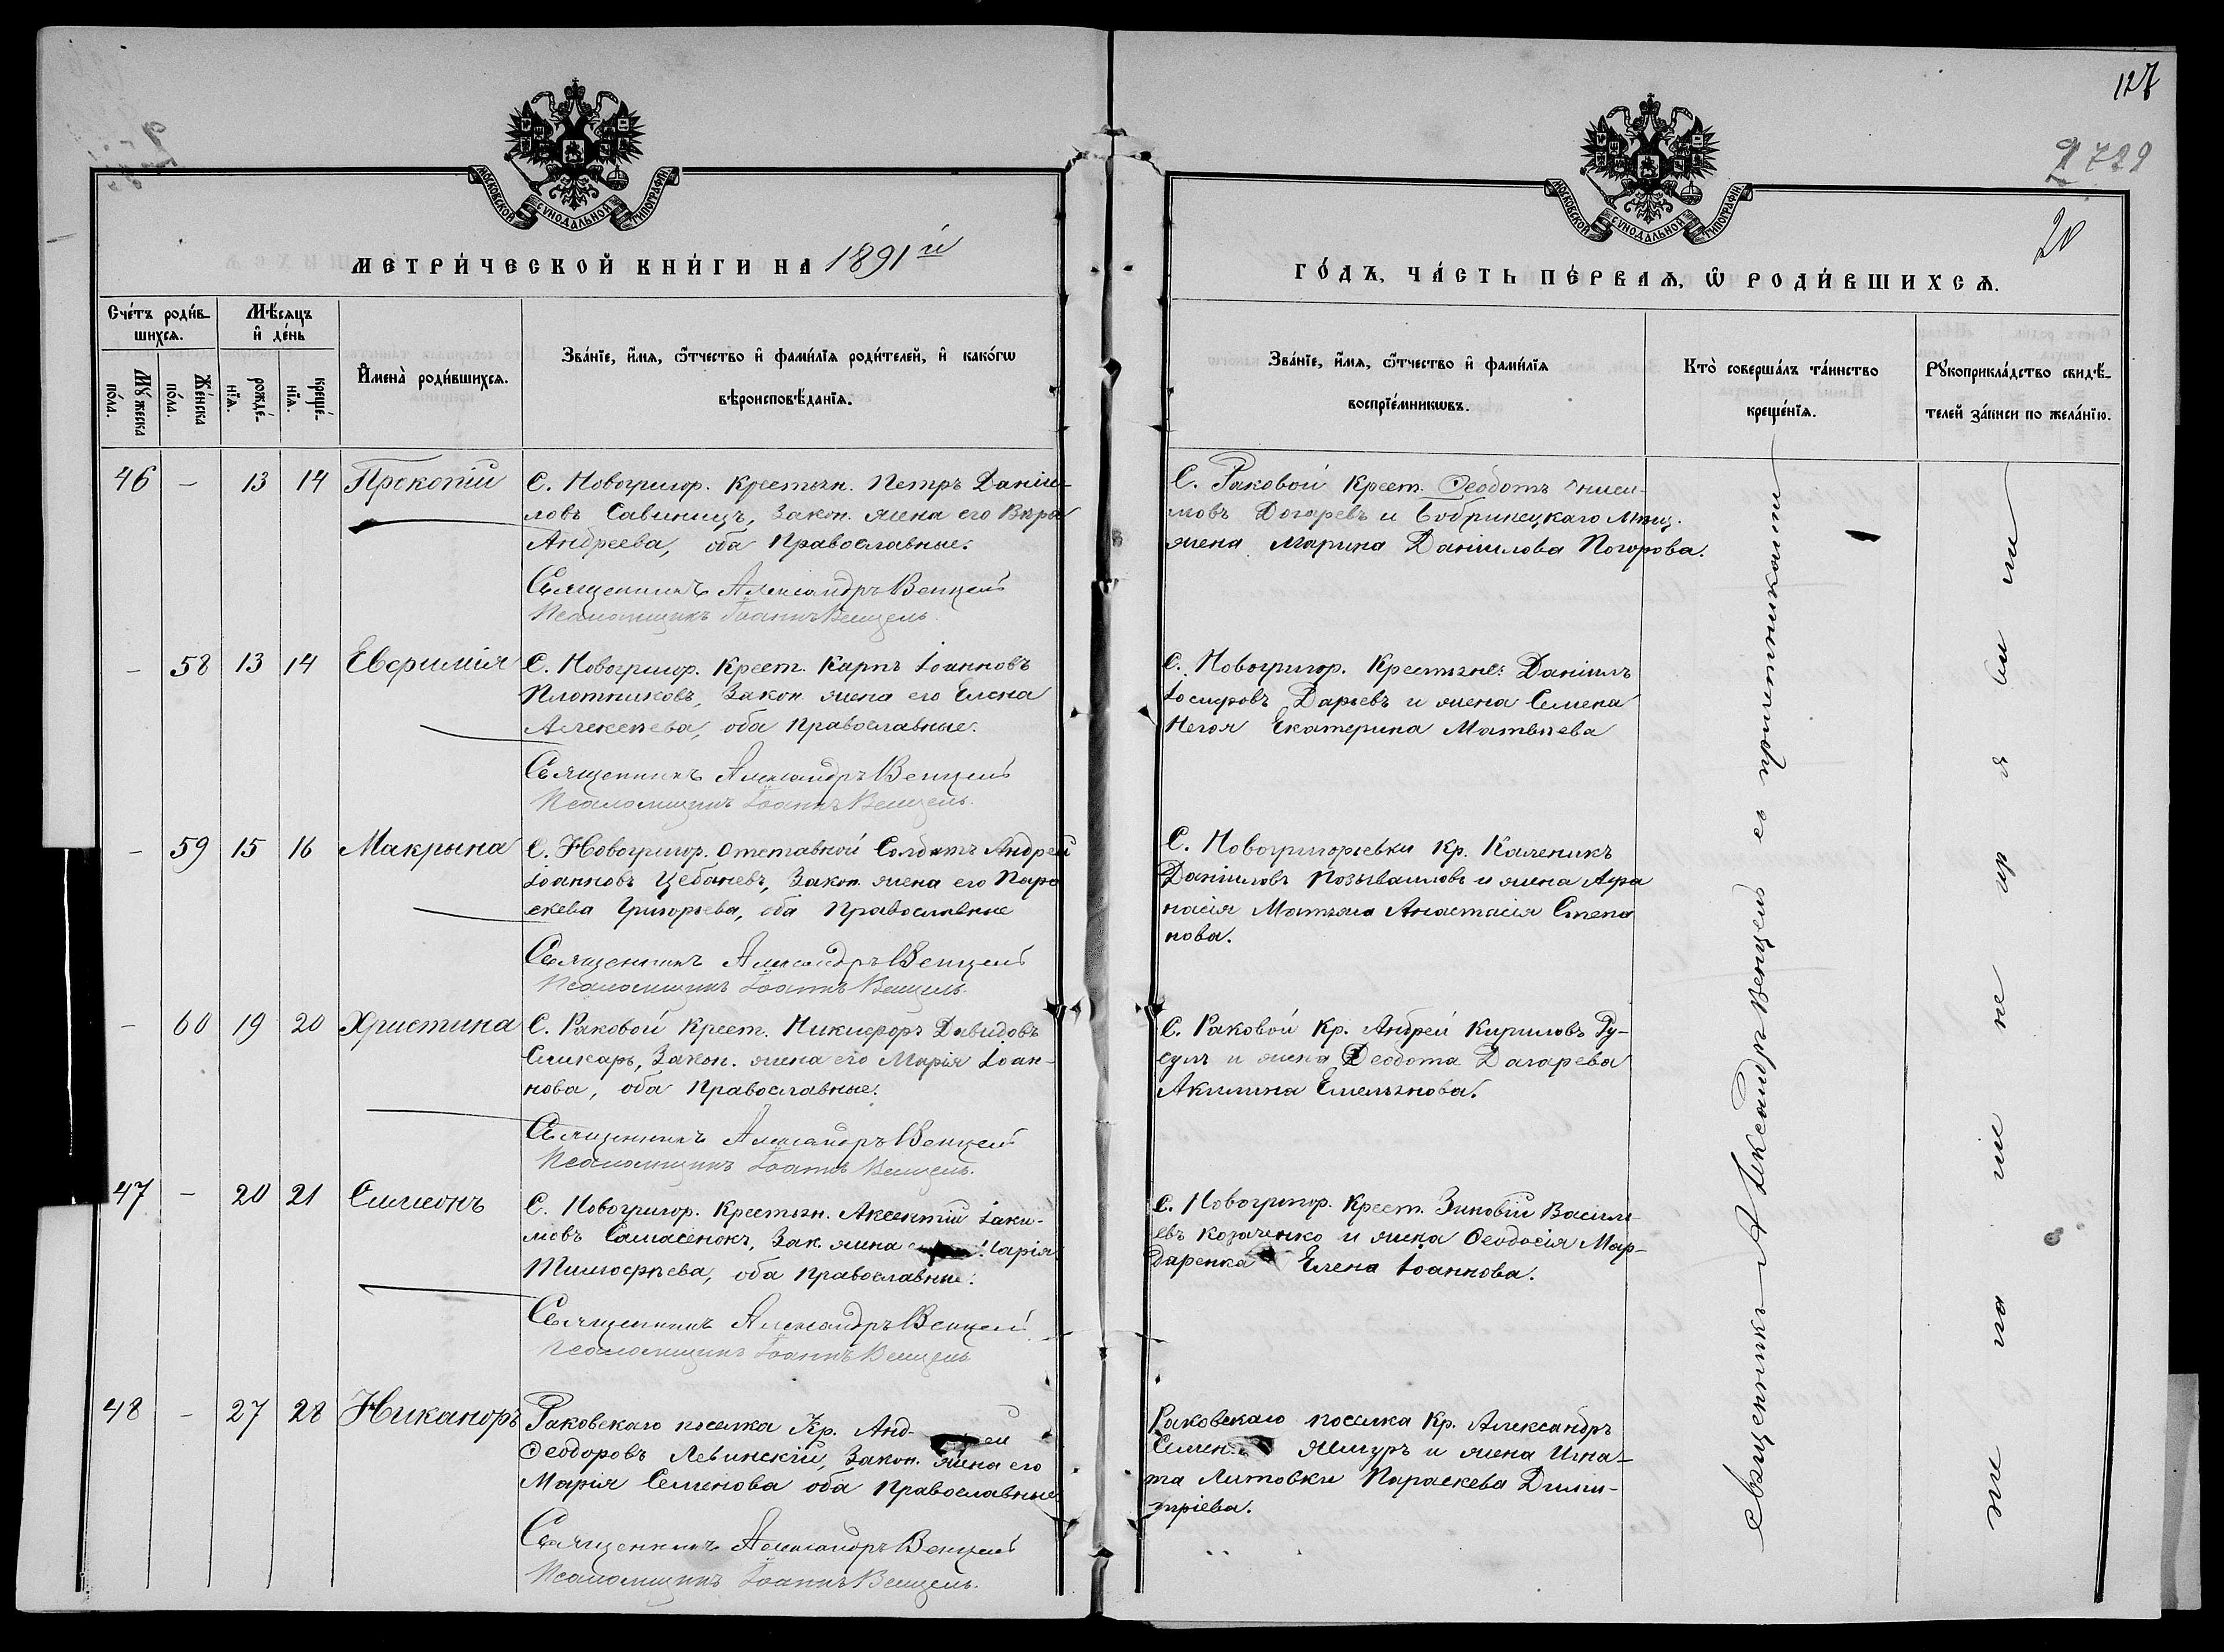 127
2729
20
МОСКОВСКОЙ СѴНОДАЛЬНОЙ ТИПОГРАФІИ
МЕТРИ́ЧЕСКОЙ КНИ́ГИ НА 1891й
Сче́тъ роди́в-
шихсѧ.
Мѣ́сѧцъ
и҆ де́нь
Мꙋ́жеска
по́ла.
Же́нска
по́ла.
рожде́-
нїѧ.
креще́-
нїѧ.
И҆мена̀ роди́вшихсѧ.
Зва́нїе, и҆́мѧ, ѻ҆́тчество и҆ фами́лїѧ роди́телей, и҆ како́гѡ
вѣроисповѣ́данїѧ.
46 - 13 14 Прокопій С. Новогригор. Крестьян. Петръ Даніи-
ловъ Савиницъ, Закон. жена его Вѣра
Андреева, оба Православные.
Священникъ Александръ Венцель
Псаломщикъ Іоаннъ Венцель.
- 58 13 14 Евфимія С. Новогригор. Крест. Карпъ Іоанновъ
Плотниковъ, Закон. жена его Елена
Алексѣева, оба Православные.
Священникъ Александръ Венцель
Псаломщикъ Іоаннъ Венцель.
- 59 15 16 Макрына С. Новогригор. отставной Солдатъ Андрей
Іоанновъ Цебаневъ, Закон. жена его Пара
скева Григорьева, оба Православные
Священникъ Александръ Венцель
Псаломщикъ Іоаннъ Венцель.
- 60 19 20 Христина С. Раковой Крест. Никифоръ Давидовъ
Слюсарь, Закон. жена его Марія Іоан-
нова, оба Православные.
Священникъ Александръ Венцель
Псаломщикъ Іоаннъ Венцель.
47 - 20 21 Симеонъ С. Новогригор. Крестьян. Аксентій Іаки-
мовъ Самасенокъ, Зак. жена Марія
Тимофѣева, оба Православные.
Священникъ Александръ Венцель
Псаломщикъ Іоаннъ Венцель
48 - 27 28 Никаноръ Раковскаго поселка Кр. Анд-рей
Ѳеодоровъ Левинскій, Закон. жена его
Марія Семенова оба Православные
Священникъ Александръ Венцель
Псаломщикъ Іоаннъ Венцель.
МОСКОВСКОЙ СѴНОДАЛЬНОЙ ТИПОГРАФІИ
ГО́ДЪ, ЧА́СТЬ ПЕ́РВАѦ, Ѡ҆ РОДИ́ВШИХСѦ.
Зва́нїе, и҆́мѧ, ѻ҆́тчество и҆ фами́лїѧ
воспрїе́мникѡвъ.
Кто̀ соверша́лъ та́инство
креще́нїѧ.
Рꙋкоприкла́дство свидѣ́-
телей за́писи по жела́нїю.
С. Раковой Крест. Ѳеодотъ Ониси-
мовъ Догаревъ и Бобринецкаго Мѣщ.
жена Марина Даніилова Погорова.
С. Новогригор. Крестьяне: Даніилъ
Іосифовъ Дарьевъ и жена Семена
Негоя Екатерина Матвѣева
С. Новогригорьевки Кр. Каленикъ
Даніиловъ Позываиловъ и жена Афа
насія Анастасія Степа
нова.
С. Раковой Кр. Андрей Кириловъ Ру-
сулъ и жена Ѳеодота Дагарева
Акилина Емельянова.
С. Новогригор. Крест. Зиновій Василі-
евъ Козаченко и жена Ѳеодосія Мар-
даренка Елена Іоаннова.
Раковскаго поселка Кр. Александръ
Семен. и жена Игна-
та Литовки Параскева Дими-
тріева.
священникъ Александръ Венцель съ причетниками